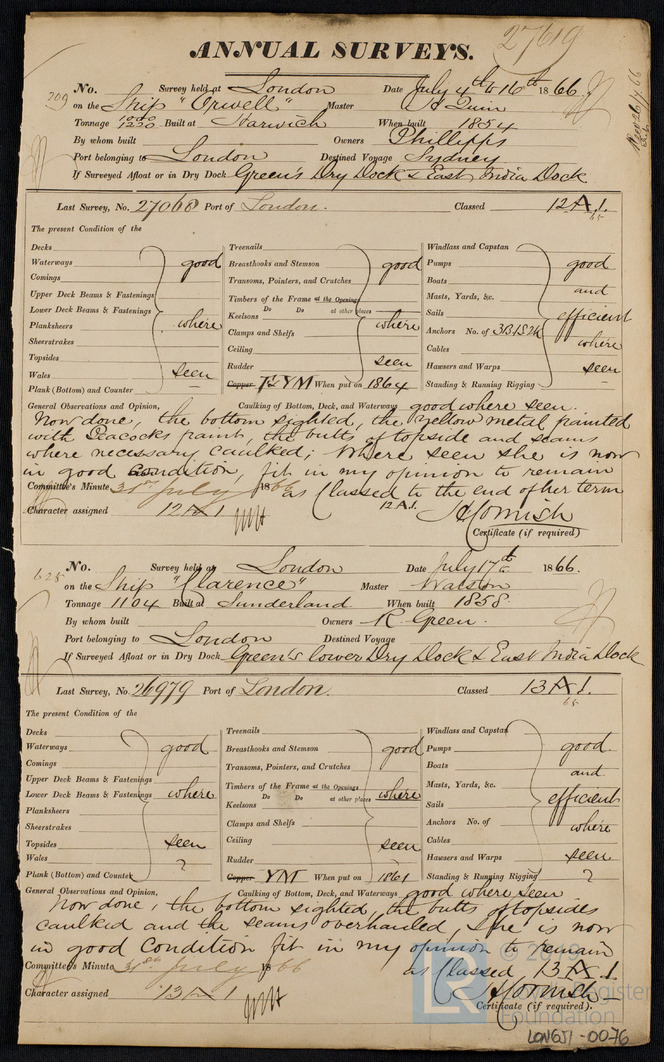 27619
ANNUAL SURVEYS.
209 No. Survey held at London Date July 4th to 16th 1866
on the Ship "Orwell" Master
Tonnage Built at Harwich When built 1854
By whom built Owners Phillipps
Port belonging to London Destined Voyage Sydney
If Surveyed Afloat or in Dry Dock Green's Dry Dock & East India Dock
Last Survey, No. 27068 Port of London. Classed 12 A 1.
65
The present Condition of the
Decks
Waterways good
Comings
Upper Deck Beams & Fastenings
Lower Deck Beams & Fastenings
Planksheers where
Sheerstrakes
Topsides
Wales seen
Plank (Bottom) and Counter
Treenails
Breasthooks and Stemson good
Transoms, Pointers, and Crutches
Timbers of the Frame at the Openings
Do Do at other places
Keelsons
Clamps and Shelfs where
Ceiling
Rudder seen
Copper YM When put on 1864
Windlass and Capstan
Pumps good
Boats and
Masts, Yards, &c.
Sails efficient
Anchors No. of 3B1S2K
Cables where
Hawsers and Warps seen
Standing & Running Rigging
General Observations and Opinion, Caulking of Bottom, Deck, and Waterways good where seen.
Now done, the bottom sighted, the Yellow metal painted
with Peacocks paint, the butts of topside and seams
where necessary caulked; Where seen she is now
in good condition, fit in my opinion to remain
Committee's Minute 31st July 1866 as Classed to the end of her term
Character assigned 12 A 1 12 A.1. Cornish
Certificate (if required)
625 No. Survey held at London Date July 17th 1866.
on the Ship "Clarence" Master Watson
Tonnage 1104 Built at Sunderland When built 1858.
By whom built Owners R. Green.
Port belonging to London Destined Voyage
If Surveyed Afloat or in Dry Dock Green's lower Dry Dock & East India Dock
Last Survey, No. 26979 Port of London. Classed 13 A 1.
65
The present Condition of the
Decks
Waterways good
Comings
Upper Deck Beams & Fastenings
Lower Deck Beams & Fastenings where
Planksheers
Sheerstrakes
Topsides seen
Wales
Plank (Bottom) and Counter
Treenails
Breasthooks and Stemson good
Transoms, Pointers, and Crutches
Timbers of the Frame at the Openings
Do Do at other places where
Keelsons
Clamps and Shelfs
Ceiling seen
Rudder
Copper YM When put on 1861
Windlass and Capstan
Pumps good
Boats and
Masts, Yards, &c.
Sails efficient
Anchors No. of where
Cables
Hawsers and Warps seen
Standing & Running Rigging
General Observations and Opinion, Caulking of Bottom, Deck, and Waterways good where seen
Now done, the bottom sighted, the butts of topsides
caulked and the seams overhauled, She is now
in good Condition fit in my opinion to remain
Committee's Minute 31st July 1866 as Classed 13 A 1.
Character assigned 13 A 1 Cornish
Certificate (if required).
LONGJ1-0076